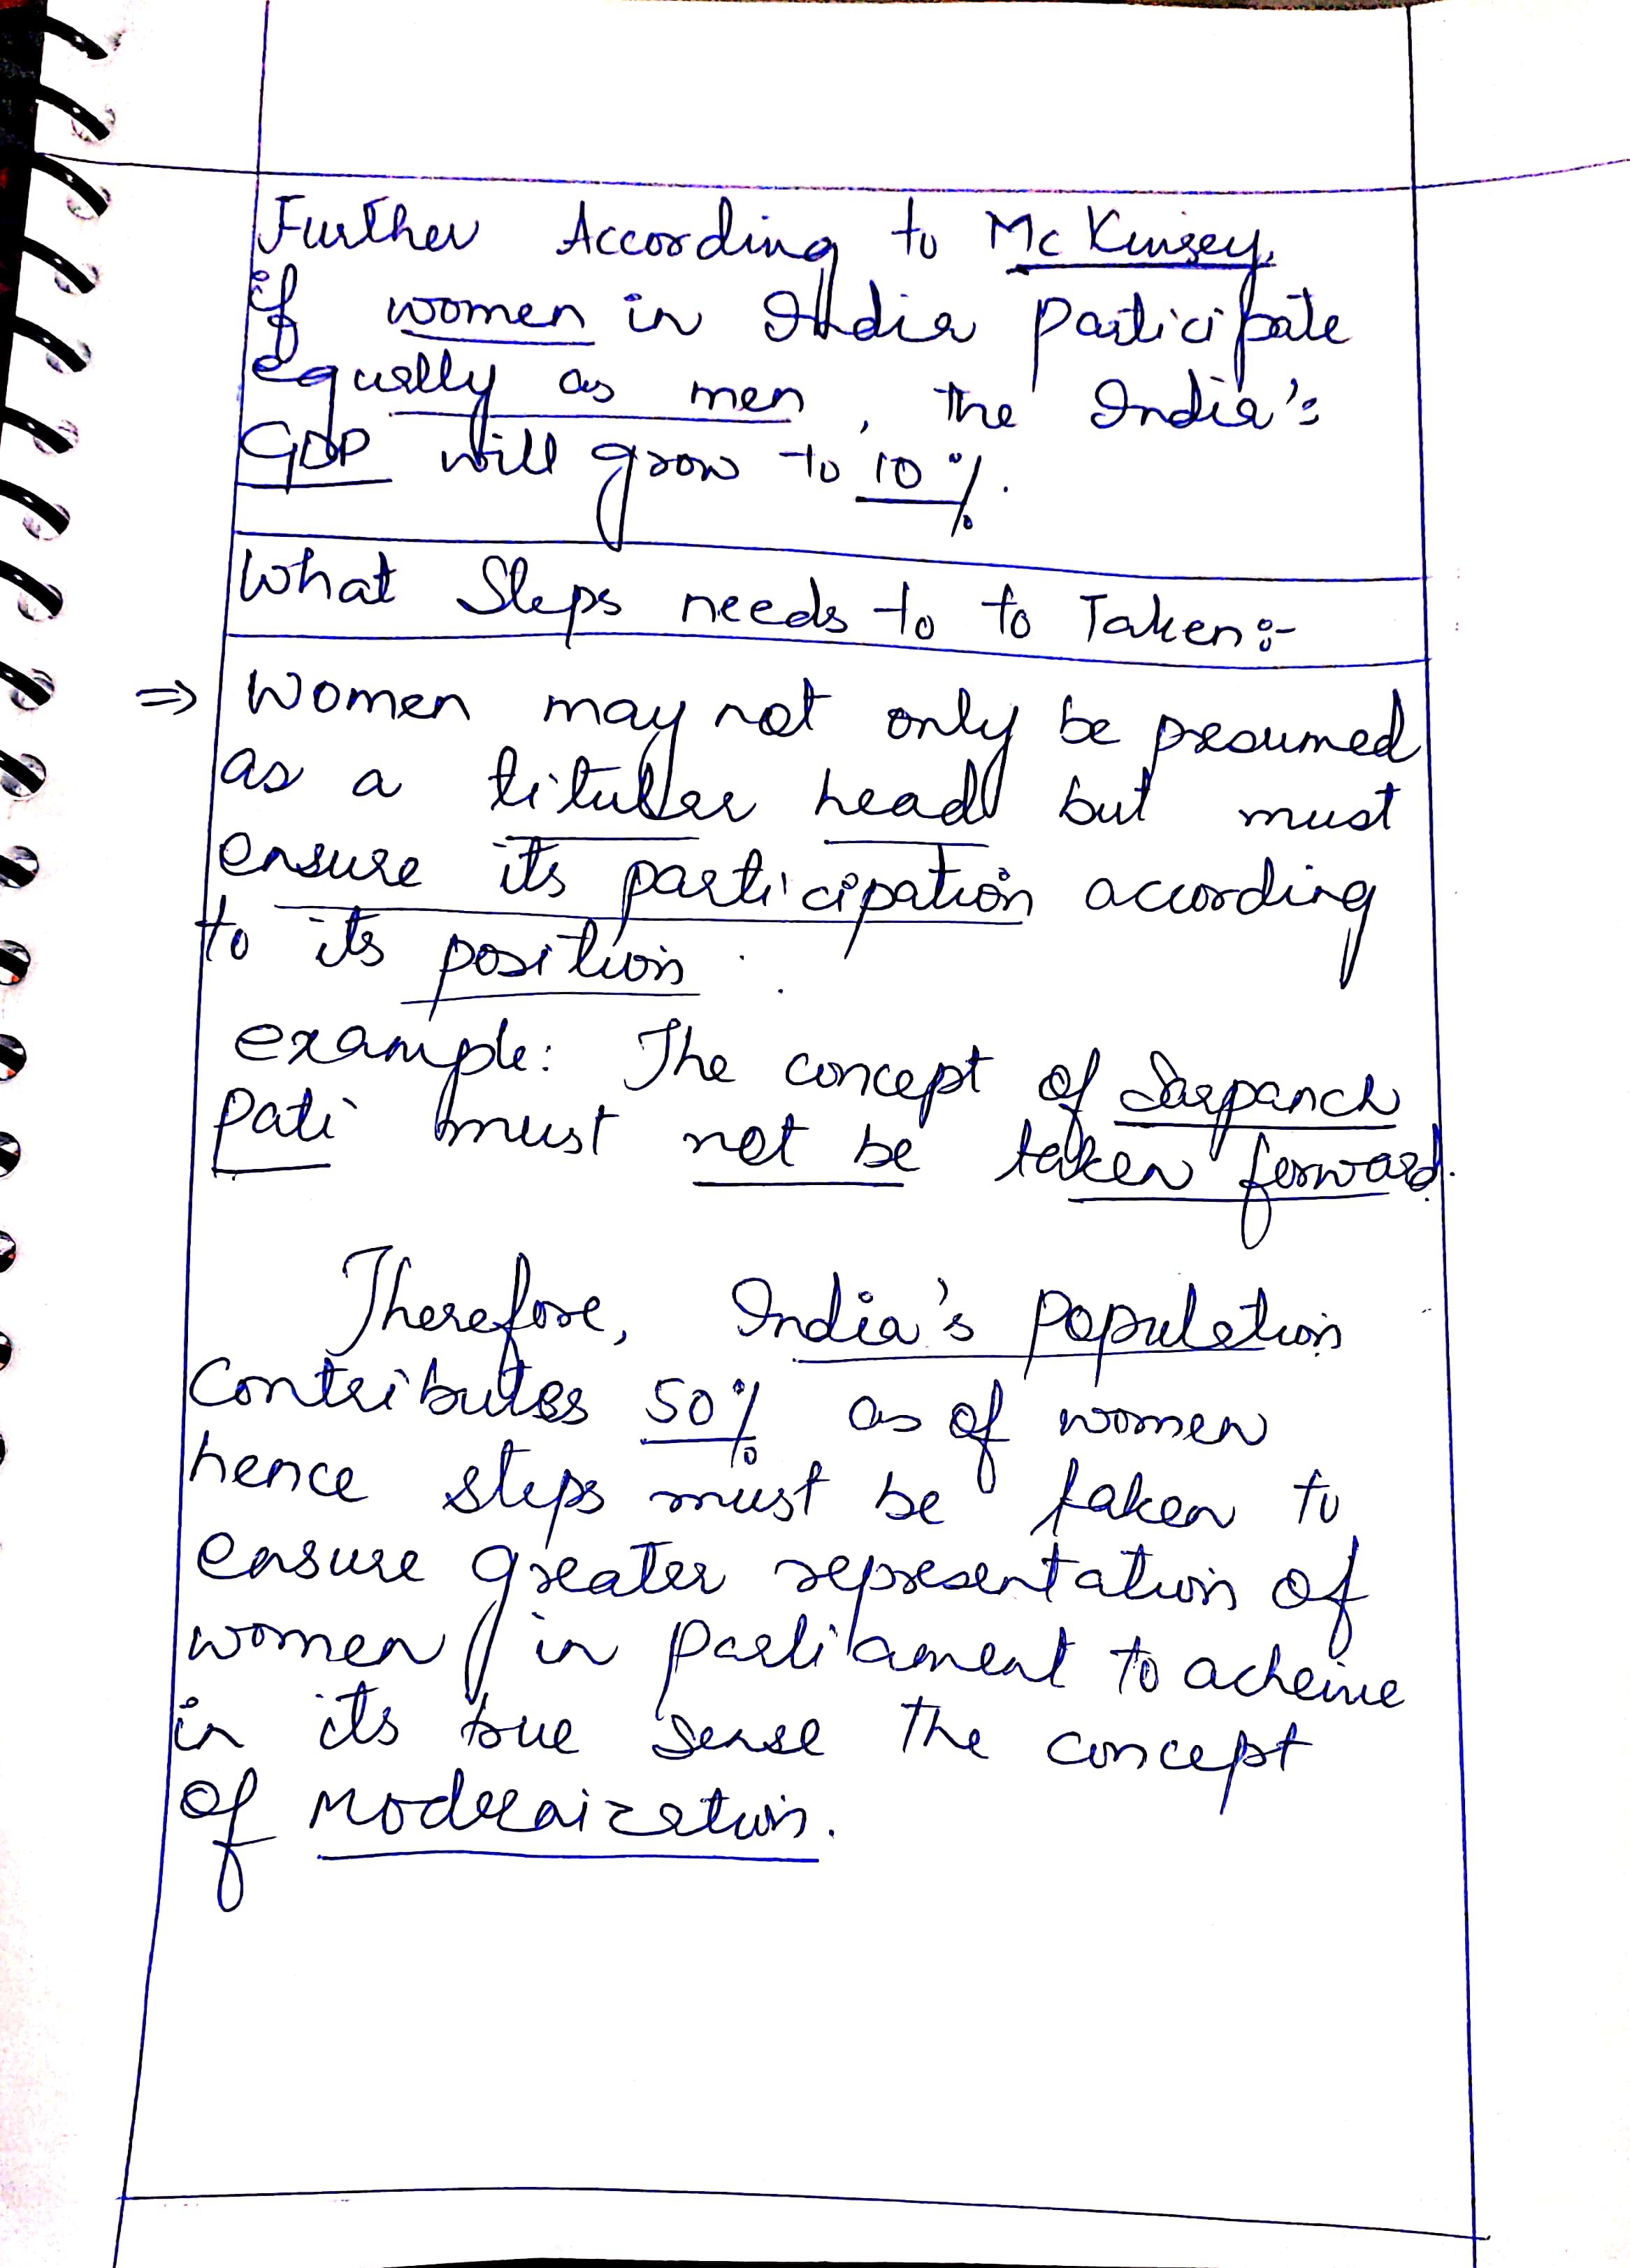 Further According to McKinsey,
if women in India participate
equally as men, the India's
GDP will grow to 10%.
What Steps needs to to Taken:-
⇒ Women may not only be presumed
as a tituller head but must
ensure its participation according
to its position.
example: The concept of Sarpanch
Pati must not be taken forward.
Therefore, India's Population
Contributes 50% as of women
hence steps must be taken to
ensure greater representation of
women in Parliament to acheive
in its true sense the concept
of Modernization.